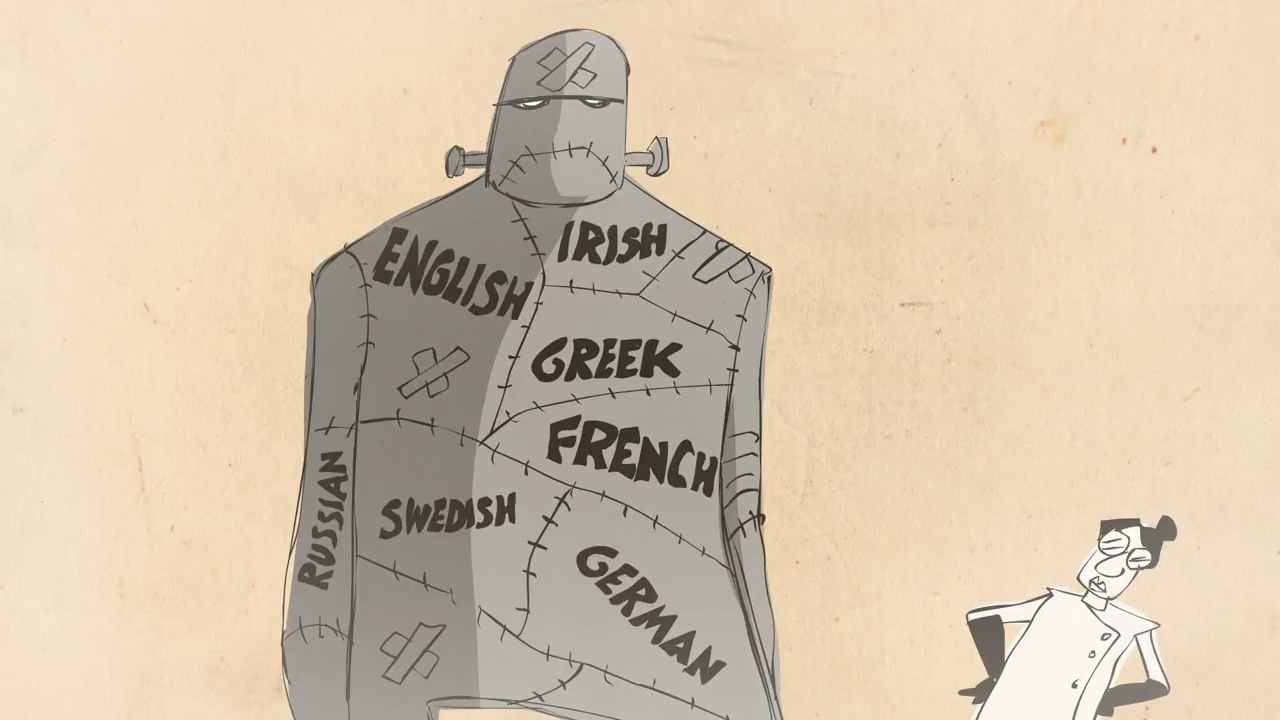 ENGLISH
IRISH
GREEK
FRENCH
RUSSIAN
SWEDISH
GERMAN